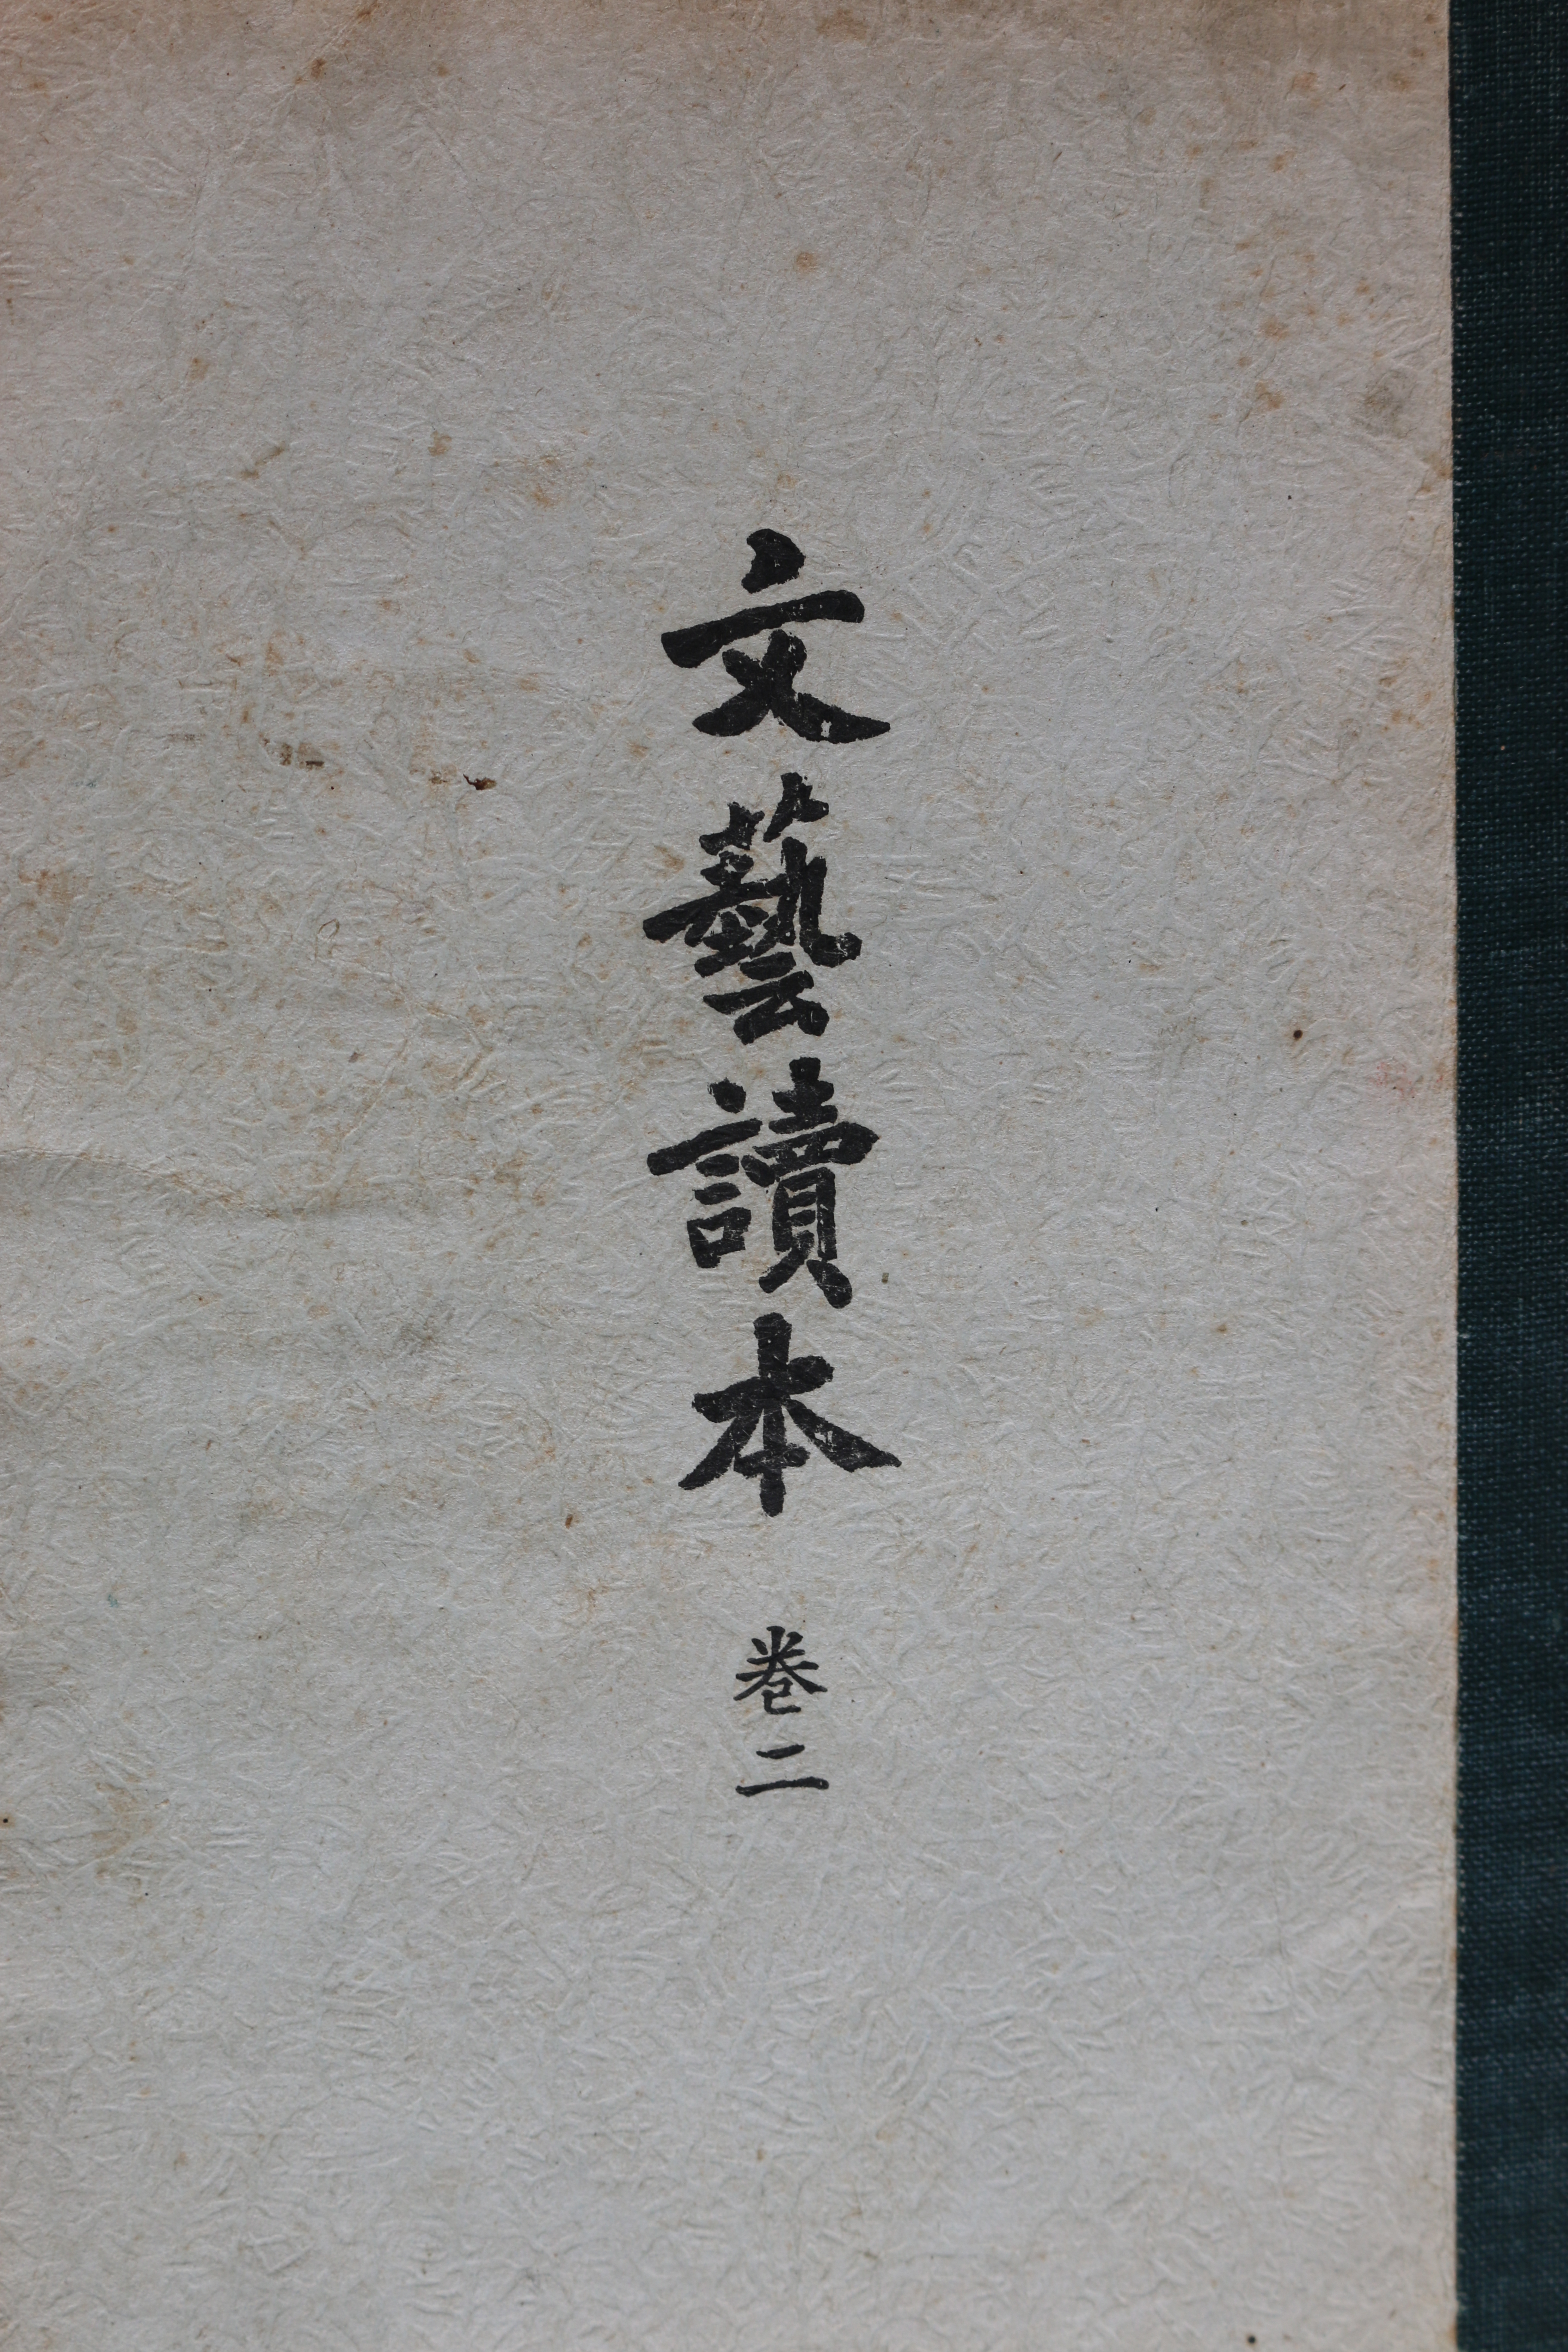 文藝讀本
卷二